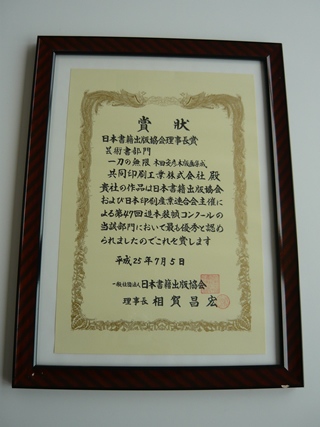 賞状
日本書籍出版協会理事長賞
芸術書部門
一刀の無限 木田安彦木版画集成
共同印刷工業株式会社 殿
貴社の作品は日本書籍出版協会
および日本印刷産業連合会主催に
よる第47回造本装幀コンクールの
当該部門において最も優秀と認め
られましたのでこれを賞します
平成25年7月5日
一般社団法人 日本書籍出版協会
理事長 相賀昌宏